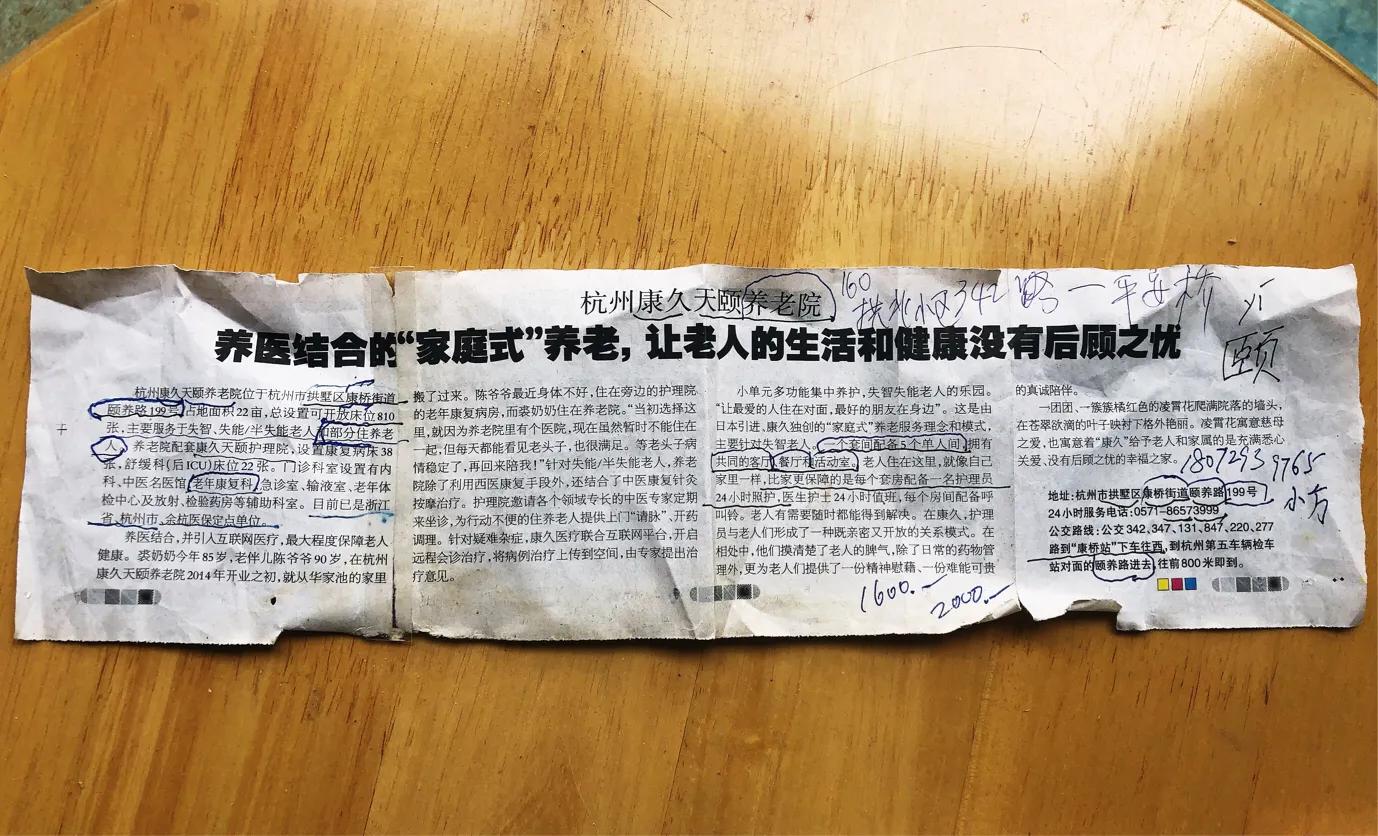 杭州康久天颐养老院
160
拱北小区342路一平安桥
yi
颐
养医结合的“家庭式”养老，让老人的生活和健康没有后顾之忧
杭州康久天颐养老院位于杭州市拱墅区康桥街道
颐养路199号，占地面积22亩，总设置可开放床位810
张，主要服务于失智、失能/半失能老人和部分住养老
人。养老院配套康久天颐护理院，设置康复病床38
张，舒缓科(后ICU)床位22张。门诊科室设置有内
科、中医名医馆、老年康复科、急诊室、输液室、老年体
检中心及放射、检验药房等辅助科室。目前已是浙江
省、杭州市、余杭医保定点单位。
养医结合，并引入互联网医疗，最大程度保障老人
健康。裘奶奶今年85岁，老伴儿陈爷爷90岁，在杭州
康久天颐养老院2014年开业之初，就从华家池的家里
搬了过来。陈爷爷最近身体不好，住在旁边的护理院
的老年康复病房，而裘奶奶住在养老院。“当初选择这
里，就因为养老院里有个医院，现在虽然暂时不能住在
一起，但每天都能看见老头子，也很满足。等老头子病
情稳定了，再回来陪我！”针对失能/半失能老人，养老
院除了利用西医康复手段外，还结合了中医康复针灸
按摩治疗。护理院邀请各个领域专长的中医专家定期
来坐诊，为行动不便的住养老人提供上门“请脉”、开药
调理。针对疑难杂症，康久医疗联合互联网平台，开启
远程会诊治疗，将病例治疗上传到空间，由专家提出治
疗意见。
小单元多功能集中养护，失智失能老人的乐园。
“让最爱的人住在对面，最好的朋友在身边”。这是由
日本引进、康久独创的“家庭式”养老服务理念和模式，
主要针对失智老人。一个套间配备5个单人间，拥有
共同的客厅、餐厅和活动室。老人住在这里，就像自己
家里一样，比家更保障的是每个套房配备一名护理员
24小时照护，医生护士24小时值班，每个房间配备呼
叫铃。老人有需要随时都能得到解决。在康久，护理
员与老人们形成了一种既亲密又开放的关系模式。在
相处中，他们摸清楚了老人的脾气，除了日常的药物管
理外，更为老人们提供了一份精神慰藉、一份难能可贵
1600.—
2000.—
的真诚陪伴。
一团团、一簇簇橘红色的凌霄花爬满院落的墙头，
在苍翠欲滴的叶子映衬下格外艳丽。凌霄花寓意慈母
之爱，也寓意着“康久”给予老人和家属的是充满悉心
关爱、没有后顾之忧的幸福之家。
18072939765
小方
地址：杭州市拱墅区康桥街道颐养路199号
24小时服务电话：0571-86573999
公交路线：公交342、347、131、847、220、277
路到“康桥站”下车往西，到杭州第五车辆检车
站对面的颐养路进去，往前800米即到。